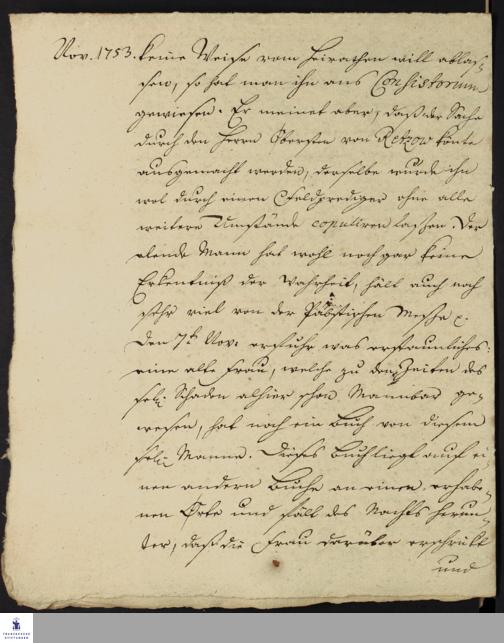 Nov. 1753. keine Weise vom heirathen will ablas-
sen, so hat man ihn ans Consistorium
gewiesen. Er meinet aber, daß der Sache
durch den Herrn Obersten von Retzow könte
ausgemacht werden, derselbe würde ihn
wol durch einen Feldprediger ohne alle
weitere Umstände copuliren laßen. Der
elende Mann hat wohl noch gar keine
Erkentniß der Wahrheit, hält auch noch
sehr viel von der Päbstischen Messe p.
Den 7t Nov. erfuhr was erstaunliches:
eine alte Frau, welche zu den Zeiten des
sel. Schaden alhier schon Mannbar ge-
wesen, hat noch ein Buch von diesem
sel. Manne. Dieses Buch liegt auf ei-
nem andern Buche an einen erhabe-
nen Orte und fält des Nachts herun-
ter, daß die Frau darüber erschrickt
und
FRANCKESCHE
STIFTUNGEN